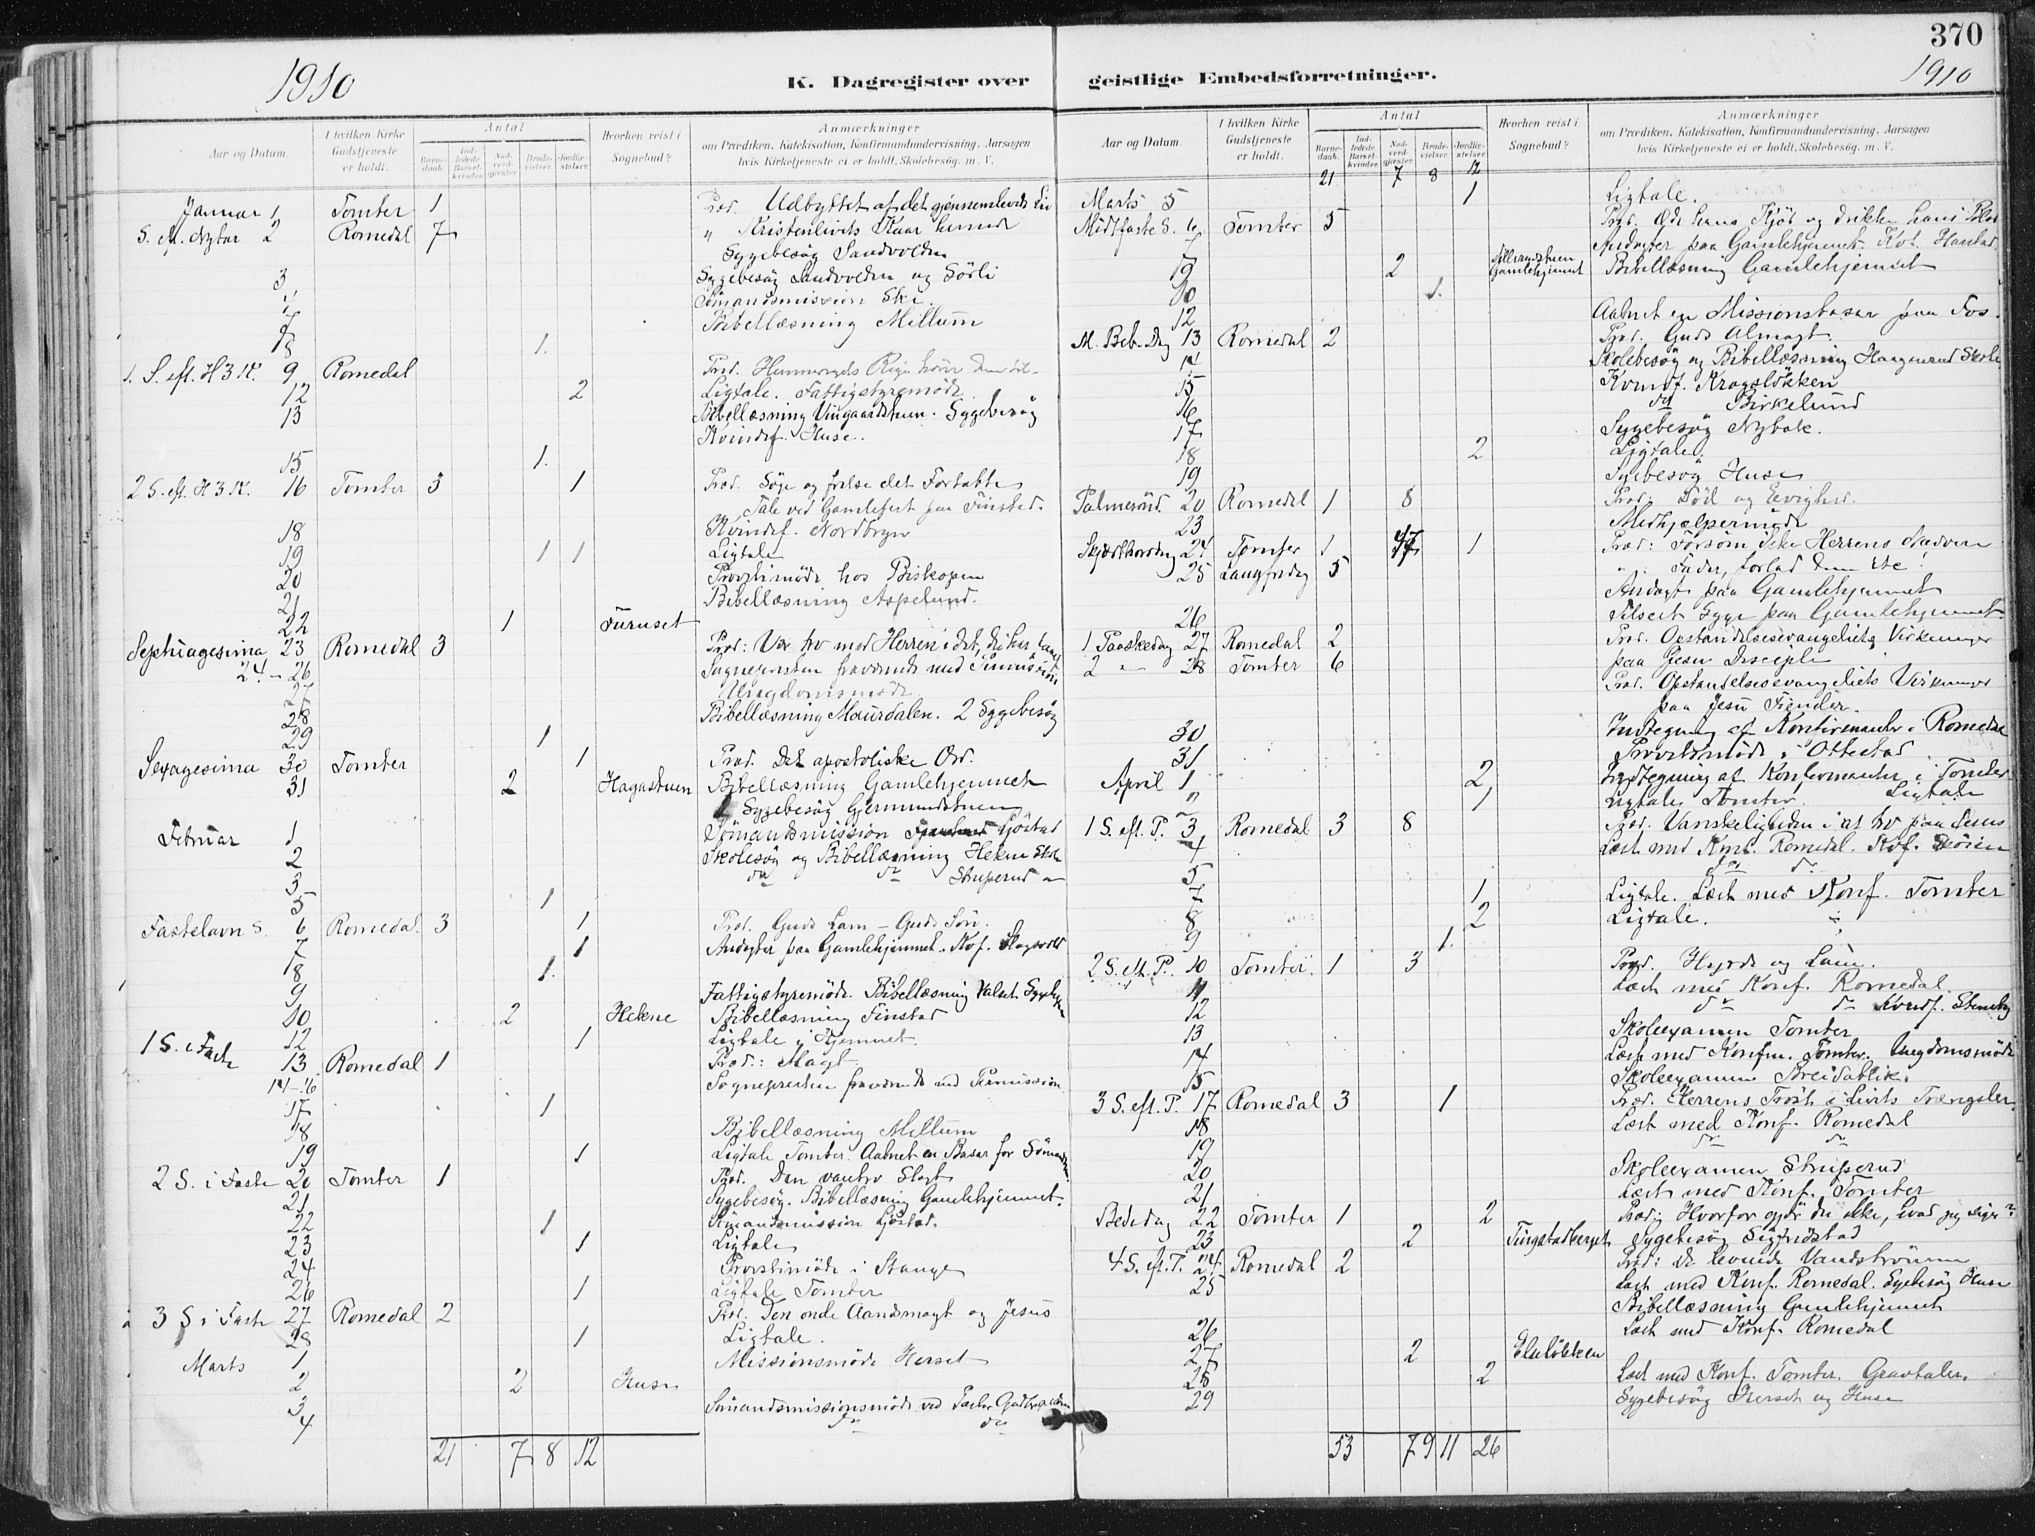 370
1910
K. Dagregister over
geistlige Embedsforretninger.
1910
Aar og Datum.
I hvilken Kirke Gudstjeneste er holdt.
Antal
Barnedaab.
Indledede Barselkvinder.
Nadverdgjester.
Brudevielser.
Jordfæstelser.
Hvorhen reist i Sognebud?
Anmærkninger
om Prædiken, Katekisation, Konfirmandundervisning, Aarsagen
hvis Kirketjeneste ei er holdt, Skolebesøg m. V.
Januar 1 Tomter 1 Præd. Udbyttet af det gjennemlevede
S. ef. Nytaar 2 Romedal 7 " Kristenlivets Kaar
Sygebesøg Sandvolden
3 Sygebesøg Sandvolden og Sörli
4 Sömandsmission Ski.
7 Bibellæsning Millum
8 1.
1. S. eft. H 3 K. 9 Romedal Præd. Himmeriges Rige hører dem til.
12 2 Ligtale. Fattigstyremöde.
13 Bibellæsning Vingaardstuen. Sygebesög
Kvindef. Huse.
15 1.
2 S. eft. H 3 K. 16 Tomter 3 1 Præd. Søge og frelse det Fortabte
Tale ved Gamlefest paa Finstad.
18 Kvindef. Nordbryn
19 1 1 Ligtale
20 Provstimöde hos Biskopen
21 Bibellæsning Aspelund.
22 1 Furuset
Septuagesima 23 Romedal 3 Præd: Vær tro mod Herren i det,
24 - 26 Sognepresten fraværende med Permission
27 Ungdomsmöde
28 Bibellæsning Maurdalen. 2 Sygebesög
29 1
Sexagesima 30 Tomter 1 Præd. Det apostoliske Ord.
31 2 Hagastuen Bibellæsning Gamlehjemmet
Sygebesög Gjermundstuen
Februar 1 Sömandsmission Gjöstad
2 Skolesög og Bibellæsning Hekne Skole
3 do do Struperud
5 1
Fastelavn S. 6 Romedal 3 1 Præd. Guds Lam - Guds Sön.
7 1 Andagter paa Gamlehjemmet.
8 1.
9 Fattigstyremöde. Bibellæsning Valset
10 2 Hekne Bibellæsning Finstad
12 1 Ligtale i Hjemmet.
1 S. i Faste 13 Romedal 1 Præd.: Magt
14-16 Sognepresten fraværende med Permission
17 1
18 Bibellæsning Millum
19 1 Ligtale Tomter. Aabnet en Basar for
2 S. i Faste 20 Tomter 1 Præd. Den vantro Slægt
21 Sygebesög. Bibellæsning Gamlehjemmet.
22 1 Sömandsmission Gjöstad.
23 1 Ligtale
24 Provstimöde i Stange
26 1 Ligtale Tomter
3 S i Faste 27 Romedal 2 Præd. Den onde Aandsmagt og Jesus
28 1 Ligtale.
Marts 1 Missionsmöde Herset
2 2 Huse
3 Sömandsmissionsmöde ved Pastor
4 do do
21 7 8 12
Aar og Datum.
I hvilken Kirke Gudstjeneste er holdt.
Antal
Barnedaab.
Indledede Barselkvinder.
Nadverdgjester.
Brudevielser.
Jordfæstelser.
Hvorhen reist i Sognebud?
Anmærkninger
om Prædiken, Katekisation, Konfirmandundervisning, Aarsagen
hvis Kirketjeneste ei er holdt, Skolebesøg m. V.
21 7 8 12
Marts 5 1 Ligtale.
Midtfaste S. 6 Tomter 5 Præd. Æde hans Kjöt og drikke hans Blod
7 Andagter paa Gamlehjemmet.
9 2 Gamlehjemmet Bibellæsning Gamlehjemmet
10 1.
12 Aabnet en Missionsbasar paa Fos.
M. Beb. Dag 13 Romedal 2 Præd. Guds Almagt.
14 Skolebesög og Bibellæsning Haagenrud Skole
15 Kvindf. Kragslökken
16 do Birkelund
17 Sygebesög Nybak.
18 2 Ligtale.
19 Sygebesög Huse
Palmesönd. 20 Romedal 1 8 Præd.
23 Medhjælpermöde
Skjærthorsdag 24 Tomter 1 47 1 Præd: Forsöm ikke Herrens Nadvere
25 Langfredag 5 " : Fader, forlad dem etc!
Andagt paa Gamlehjemmet
26 Tilseet Syge paa Gamlehjemmet
1 Paaskedag 27 Romedal 2 Præd. Opstandelsesevangeliets Virkninger
paa Jesu Disciple
2 " 28 Tomter 6 Præd. Opstandelsesevangeliets Virkninger
paa Jesu Fiender.
30 Indtegning af Konfirmander i Romedal
31 Provstimöde i Ottestad
April 1 2 Indtegning af Konfirmander i Tomter
2 1 Ligtale Tomter. Ligtale
1 S. eft. P. 3 Romedal 3 8 Præd. Vanskeligheden i at tro paa Jesus
4 Læst med Konf. Romedal.
5 do do
7 1 Ligtale. Læst med Konf. Tomter
8 2 Ligtale.
9 1.
2 S. eft. P. 10 Tomter. 1 3 Præd. Hyrde og Lam.
11 Læst med Konf. Romedal.
12 do do Kvindf. Stensby
13 Skoleexamen Tomter
14 Læst med Konfm. Tomter. Ungdomsmöde
15 Skoleexamen Breidablik.
3 S. eft. P. 17 Romedal 3 1 Præd. Herrens Tröst i Livets Trængsler.
18 Læst med Konf. Romedal
19 do. do.
20 Skoleexamen Struperud
21 Læst med Konf. Tomter
Bededag 22 Tomter 1 2 Præd; Hvorfor gjör du ikke, hvad jeg siger?
23 2 Tingstadberget Sygebesög Sigfridstad
4 S. eft. P. 24 Romedal 2 Præd: De levende Vandströmme
25 Læst med Konf. Romedal. Sygebesög Huse
Bibellæsning Gamlehjemmet
26 Læst med Konf. Romedal
27 2 Elslökken
28 2 Læst med Konf. Tomter. Gravtaler.
29 Sygebesög Herset og Huse
53 79 11 26